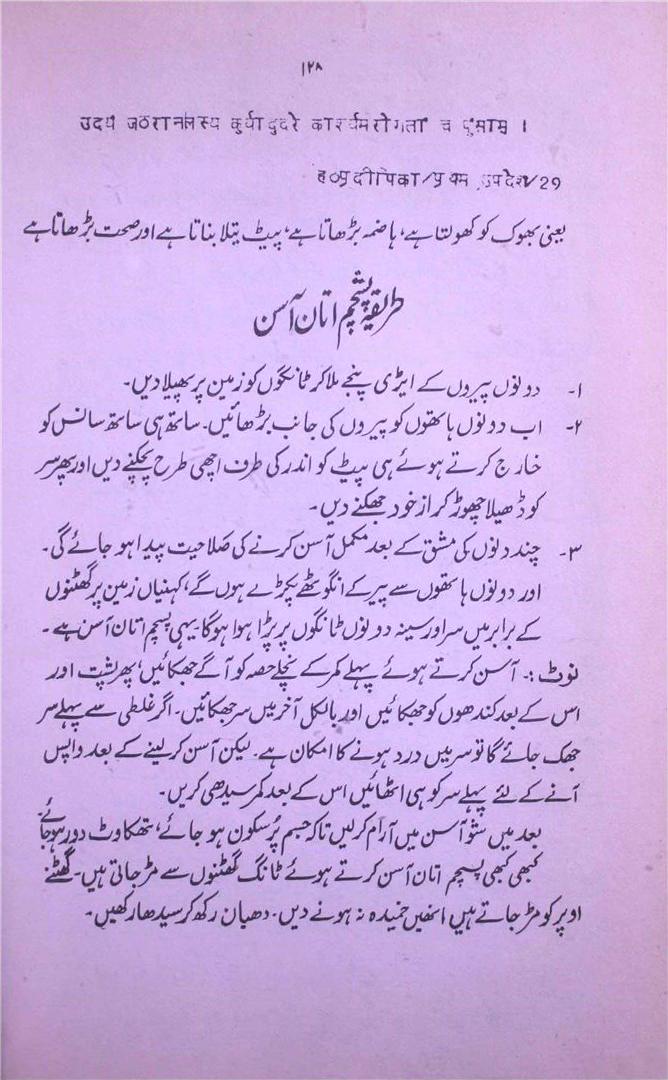 ۱۲۸
उदयं जठरानलस्य कुर्यादुदरे कार्श्यमरोगतां च पुंसाम् ।
हठप्रदीपिका/प्रथम उपदेश/29
یعنی بھوک کو کھولتا ہے، ہاضمہ بڑھاتا ہے، پیٹ پتلا بناتا ہے اور صحت بڑھاتا ہے
طریقہ پشچم اتان آسن
۱۔ دونوں پیروں کے ایڑی پنجے ملا کر ٹانگوں کو زمین پر پھیلا دیں۔
۲۔ اب دونوں ہاتھوں کو پیروں کی جانب بڑھائیں۔ ساتھ ہی ساتھ سانس کو
خارج کرتے ہوئے ہی پیٹ کو اندر کی طرف اچھی طرح پچکنے دیں اور پھر سر
کو ڈھیلا چھوڑ کر از خود جھکنے دیں۔
۳۔ چند دنوں کی مشق کے بعد مکمل آسن کرنے کی صلاحیت پیدا ہو جائے گی۔
اور دونوں ہاتھوں سے پیر کے انگوٹھے پکڑے ہوں گے، کہنیاں زمین پر گھٹنوں
کے برابر میں سر اور سینہ دونوں ٹانگوں پر پڑا ہوا ہوگا۔ یہی پسچم اتان آسن ہے۔
نوٹ :۔ آسن کرتے ہوئے پہلے کمر کے نچلے حصہ کو آگے جھکائیں، پھر پشت اور
اس کے بعد کندھوں کو جھکائیں اور بالکل آخر میں سر جھکائیں۔ اگر غلطی سے پہلے سر
جھک جائے گا تو سر میں درد ہونے کا امکان ہے۔ لیکن آسن کر لینے کے بعد واپس
آنے کے لئے پہلے سر کو ہی اٹھائیں اس کے بعد کمر سیدھی کریں۔
بعد میں شو آسن میں آرام کر لیں تاکہ جسم پُرسکون ہو جائے، تھکاوٹ دور ہو جائے۔
کبھی کبھی پسچم اتان آسن کرتے ہوئے ٹانگ گھٹنوں سے مڑ جاتی ہیں۔ گھٹنے
اوپر کو مڑ جاتے ہیں انھیں خمیدہ نہ ہونے دیں۔ دھیان رکھ کر سیدھا رکھیں۔